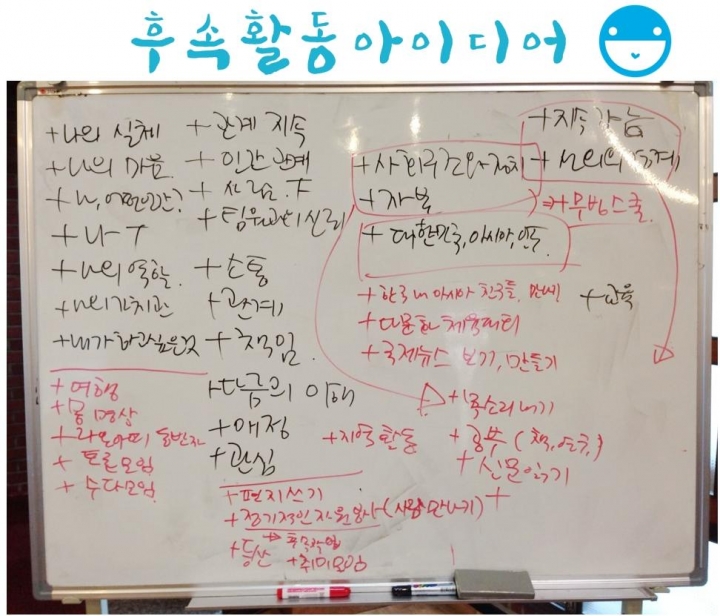 후속활동아이디어
+나의 실체
+나의 마음
+나, 어떤인간?
+나 -
+나의 역할
+나의가치관
+내가하고싶은것
+여행
+몸 명상
동반자
+토론모임
+수다모임
+관계 지속
+인간관계
+팀원과의신뢰
+소통
+관계
+책임
+다름의 이해
+애정
+관심
+편지쓰기
+정기적인자원봉사(사람만나기)
+등산
+취미모임
+지역활동
+지속가능
+사회구조와정치
+자본
+나의의
+대한민국,아시아,인도
+한국내 아시아 친구들
+다문화
+국제뉴스 보기, 만들기
+교육
+목소리내기
+공부 (책,연극,)
+신문읽기
+